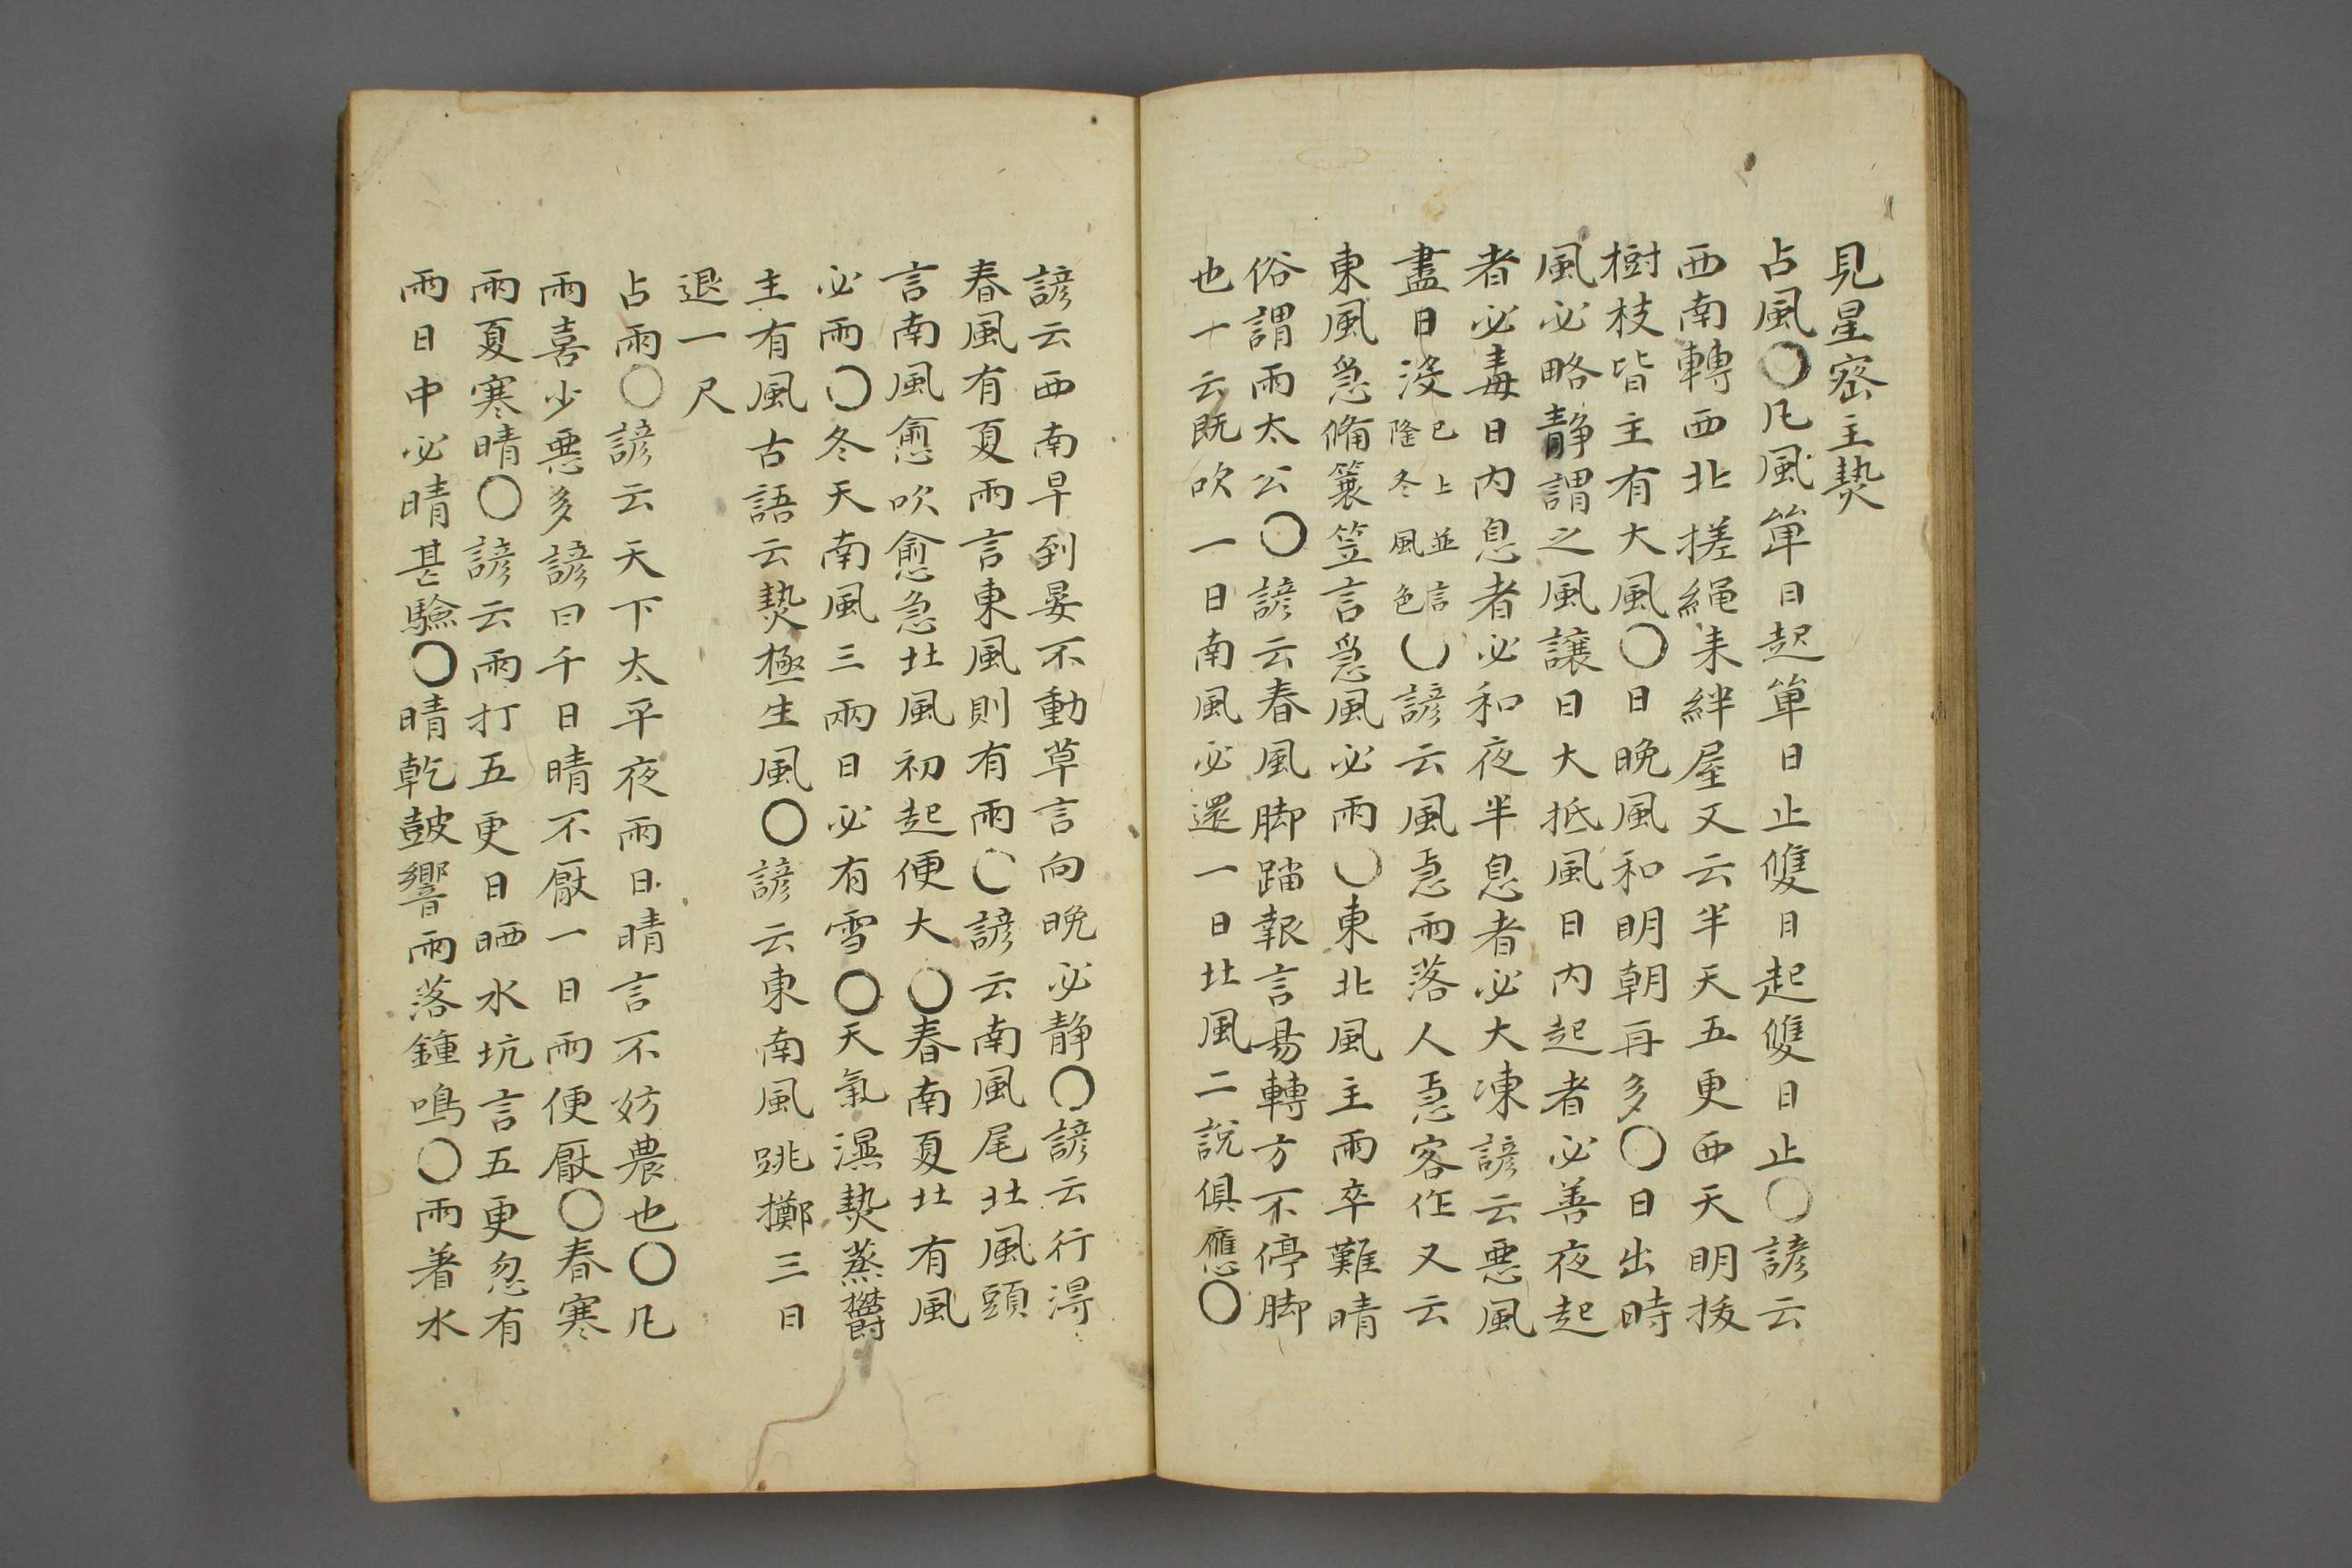 見星密主熱
占風〇凡風單日起單日止雙日起雙日止〇諺云
西南轉西北搓繩来絆屋又云半天五更西天明拔
樹枝皆主有大風〇日晩風和明朝再多〇日出時
風必略静謂之風讓日大抵風日内起者必善夜起
者必毒日内息者必和夜半息者必大凍諺云悪風
盡日没已上並言隆冬風色〇諺云風急雨落人急客作又云
東風急備簑笠言急風必雨〇東北風主雨卒難晴
俗謂雨太公〇諺云春風脚踏報言易轉方不停脚
也一云既吹一日南風必還一日北風二說俱應〇
諺云西南早到晏不動草言向晩必静〇諺云行淂
春風有夏雨言東風則有雨〇諺云南風尾北風頭
言南風愈吹愈急北風初起便大〇春南夏北有風
必雨〇冬天南風三兩日必有雪〇天氣濕熱蒸欝
主有風古語云熱極生風〇諺云東南風跳擲三日
退一尺
占雨〇諺云天下太平夜雨日晴言不妨農也〇凡
雨喜少悪多諺曰千日晴不厭一日雨便厭〇春寒
雨夏寒晴〇諺云雨打五更日晒水坑言五更忽有
雨日中必晴甚驗〇晴乾皷響雨落鍾鳴〇雨着水